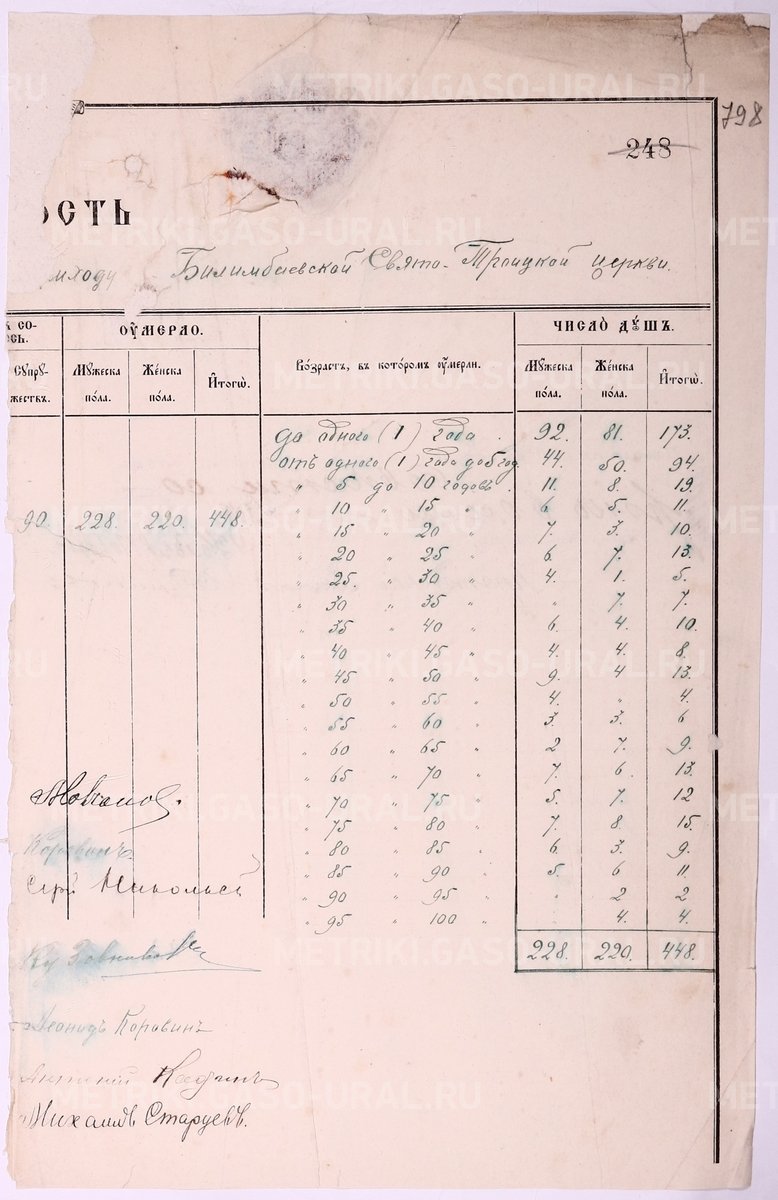 798
248
ОСТЬ
иходу Билимбаевской Свято-Троицкой церкви.
СО-
СЬ.
ОУМЕРЛО.
ЧИСЛО ДУШЪ.
СУПРУ-
ЖЕСТВЪ.
МУЖЕСКА ПОЛА.
ЖЕНСКА ПОЛА.
ИТОГѠ.
Возрастъ, въ которомъ оумерли.
МУЖЕСКА ПОЛА.
ЖЕНСКА ПОЛА.
ИТОГѠ.
до одного (1) года. 92. 81. 173.
отъ одного (1) года до 5 год 44. 50. 94.
" 5 до 10 годовъ. 11. 8. 19.
" 10 " 15 " 6. 5. 11.
90. 228. 220. 448.
" 15 " 20 " 7. 3. 10.
" 20 " 25 " 6. 7. 13.
" 25. " 30 " 4. 1. 5.
" 30 " 35 " " 7. 7.
" 35 " 40 " 6. 4. 10.
" 40 " 45 " 4. 4. 8.
" 45 " 50 " 9. 4 13.
" 50 " 55 " 4. " 4.
" 55 " 60 " 3. 3. 6
" 60 " 65 " 2 7. 9.
" 65 " 70 " 7. 6. 13.
" 70 " 75 " 5. 7. 12
" 75 " 80 " 7. 8. 15.
" 80 " 85 " 6. 3. 9.
" 85 " 90 " 5. 6 11.
" 90 " 95 " " 2 2
" 95 " 100 " 4. 4.
228. 220. 448.
Коровинъ.
Леонидъ Коровинъ
Михаилъ Старцевъ.
METRIKI.GASO-URAL.RU